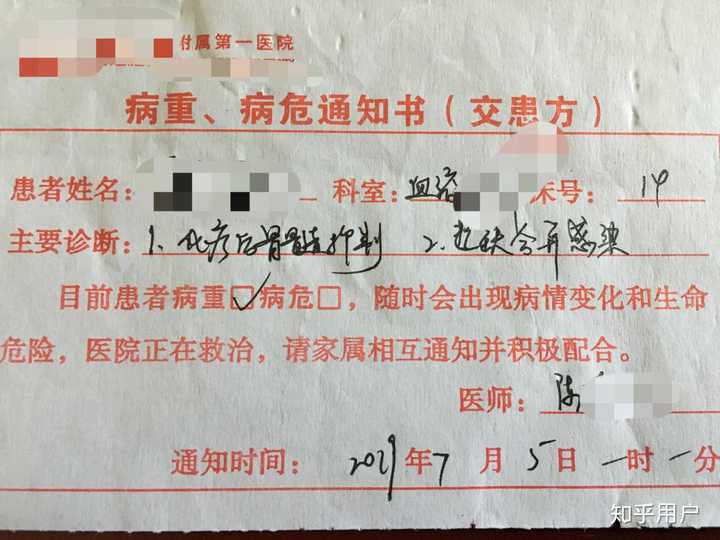 附属第一医院
病重、病危通知书（交患方）
患者姓名： 科室：血液 床号：14
主要诊断：1、化疗后骨髓抑制 2、粒缺合并感染
目前患者病重☑病危□，随时会出现病情变化和生命
危险，医院正在救治，请家属相互通知并积极配合。
医师：陈
通知时间： 年7月5日一时一分
知乎用户